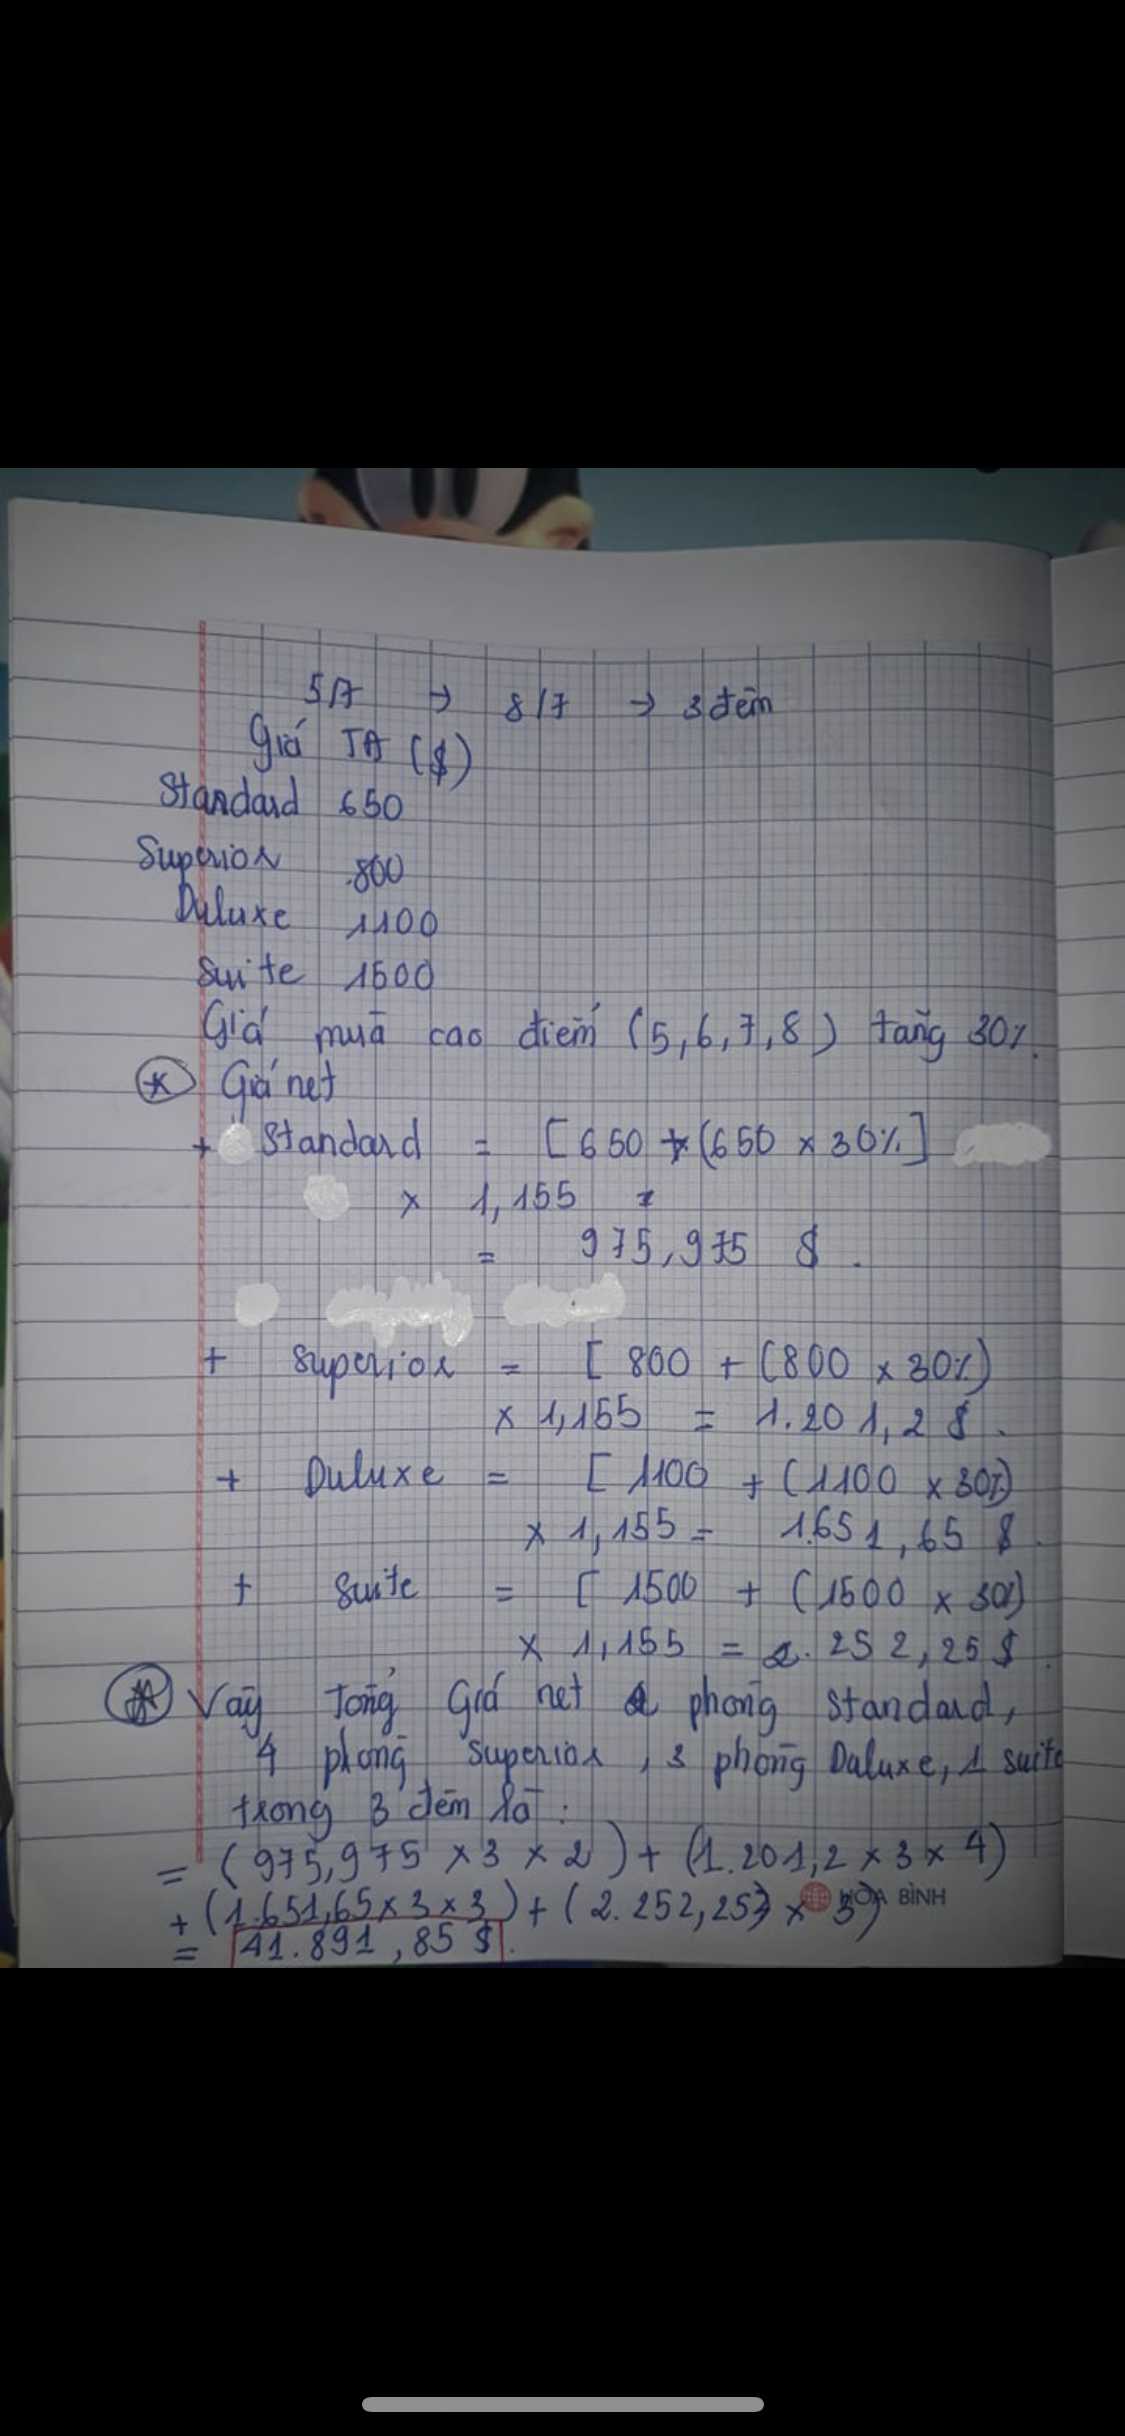 5/7 → 8/7 → 3 đêm
Giá TA ($)
Standard 650
Superior 800
Duluxe 1100
Suite 1500
Giá mùa cao điểm (5,6,7,8) tăng 30%.
* Giá net
+ Standard = [650 + (650 x 30%]
x 1,155
= 975,975 $.
+ Superior = [800 + (800 x 30%)
x 1,155 = 1.201,2 $.
+ Duluxe = [1100 + (1100 x 30%)
x 1,155 = 1.651,65 $.
+ Suite = [1500 + (1500 x 30%)
x 1,155 = 2.252,25 $.
* Vậy Tổng Giá net 2 phòng Standard,
4 phòng Superior, 3 phòng Daluxe, 1 suite
trong 3 đêm là:
= (975,975 x 3 x 2) + (1.201,2 x 3 x 4)
+ (1.651,65 x 3 x 3) + (2.252,25 x 3)
= 41.891,85 $.
HÒA BÌNH